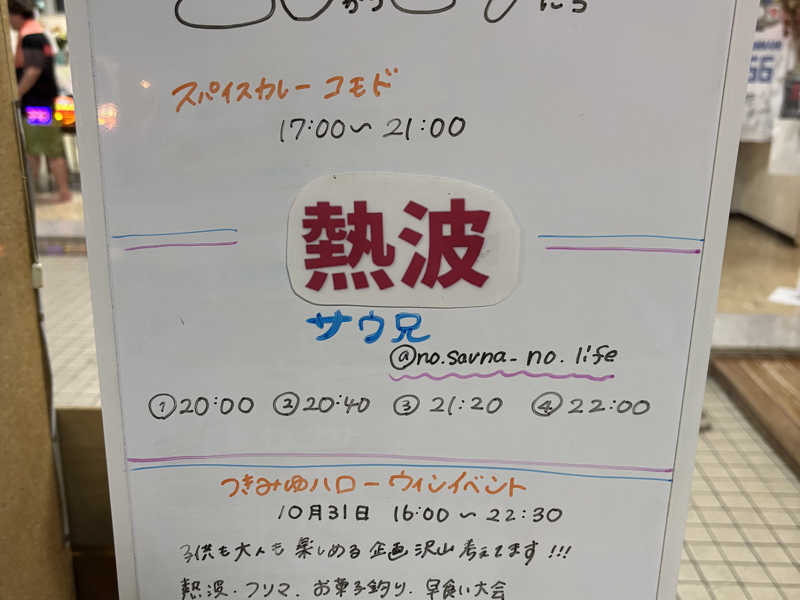 スパイスカレー コモド
17:00〜21:00
熱波
サウ兄
@no.sauna_no.life
①20:00 ②20:40 ③21:20 ④22:00
つきみゆハローウィンイベント
10月31日 16:00〜22:30
子供も大人も楽しめる企画沢山考えてます!!!
熱波・フリマ・お菓子釣り・早食い大会